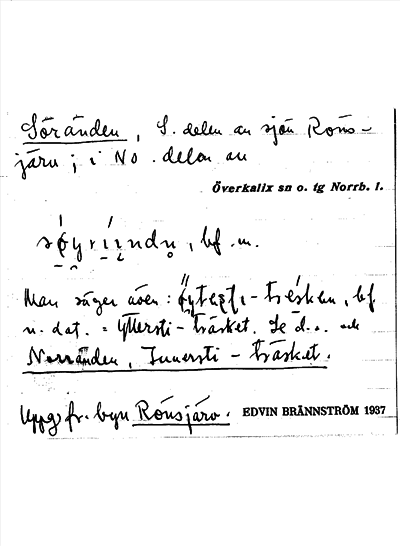 Söränden, S. delen av sjön Röns-
järv; i No. delen av
Överkalix sn o. tg Norrb. l.
bf. m.
Man säger även: bf
n. dat. = Yttersti-träsket. Se d.o. och
Norränden, Innersti-träsket.
Uppg. fr. byn Rönsjärv. EDVIN BRÄNNSTRÖM 1937